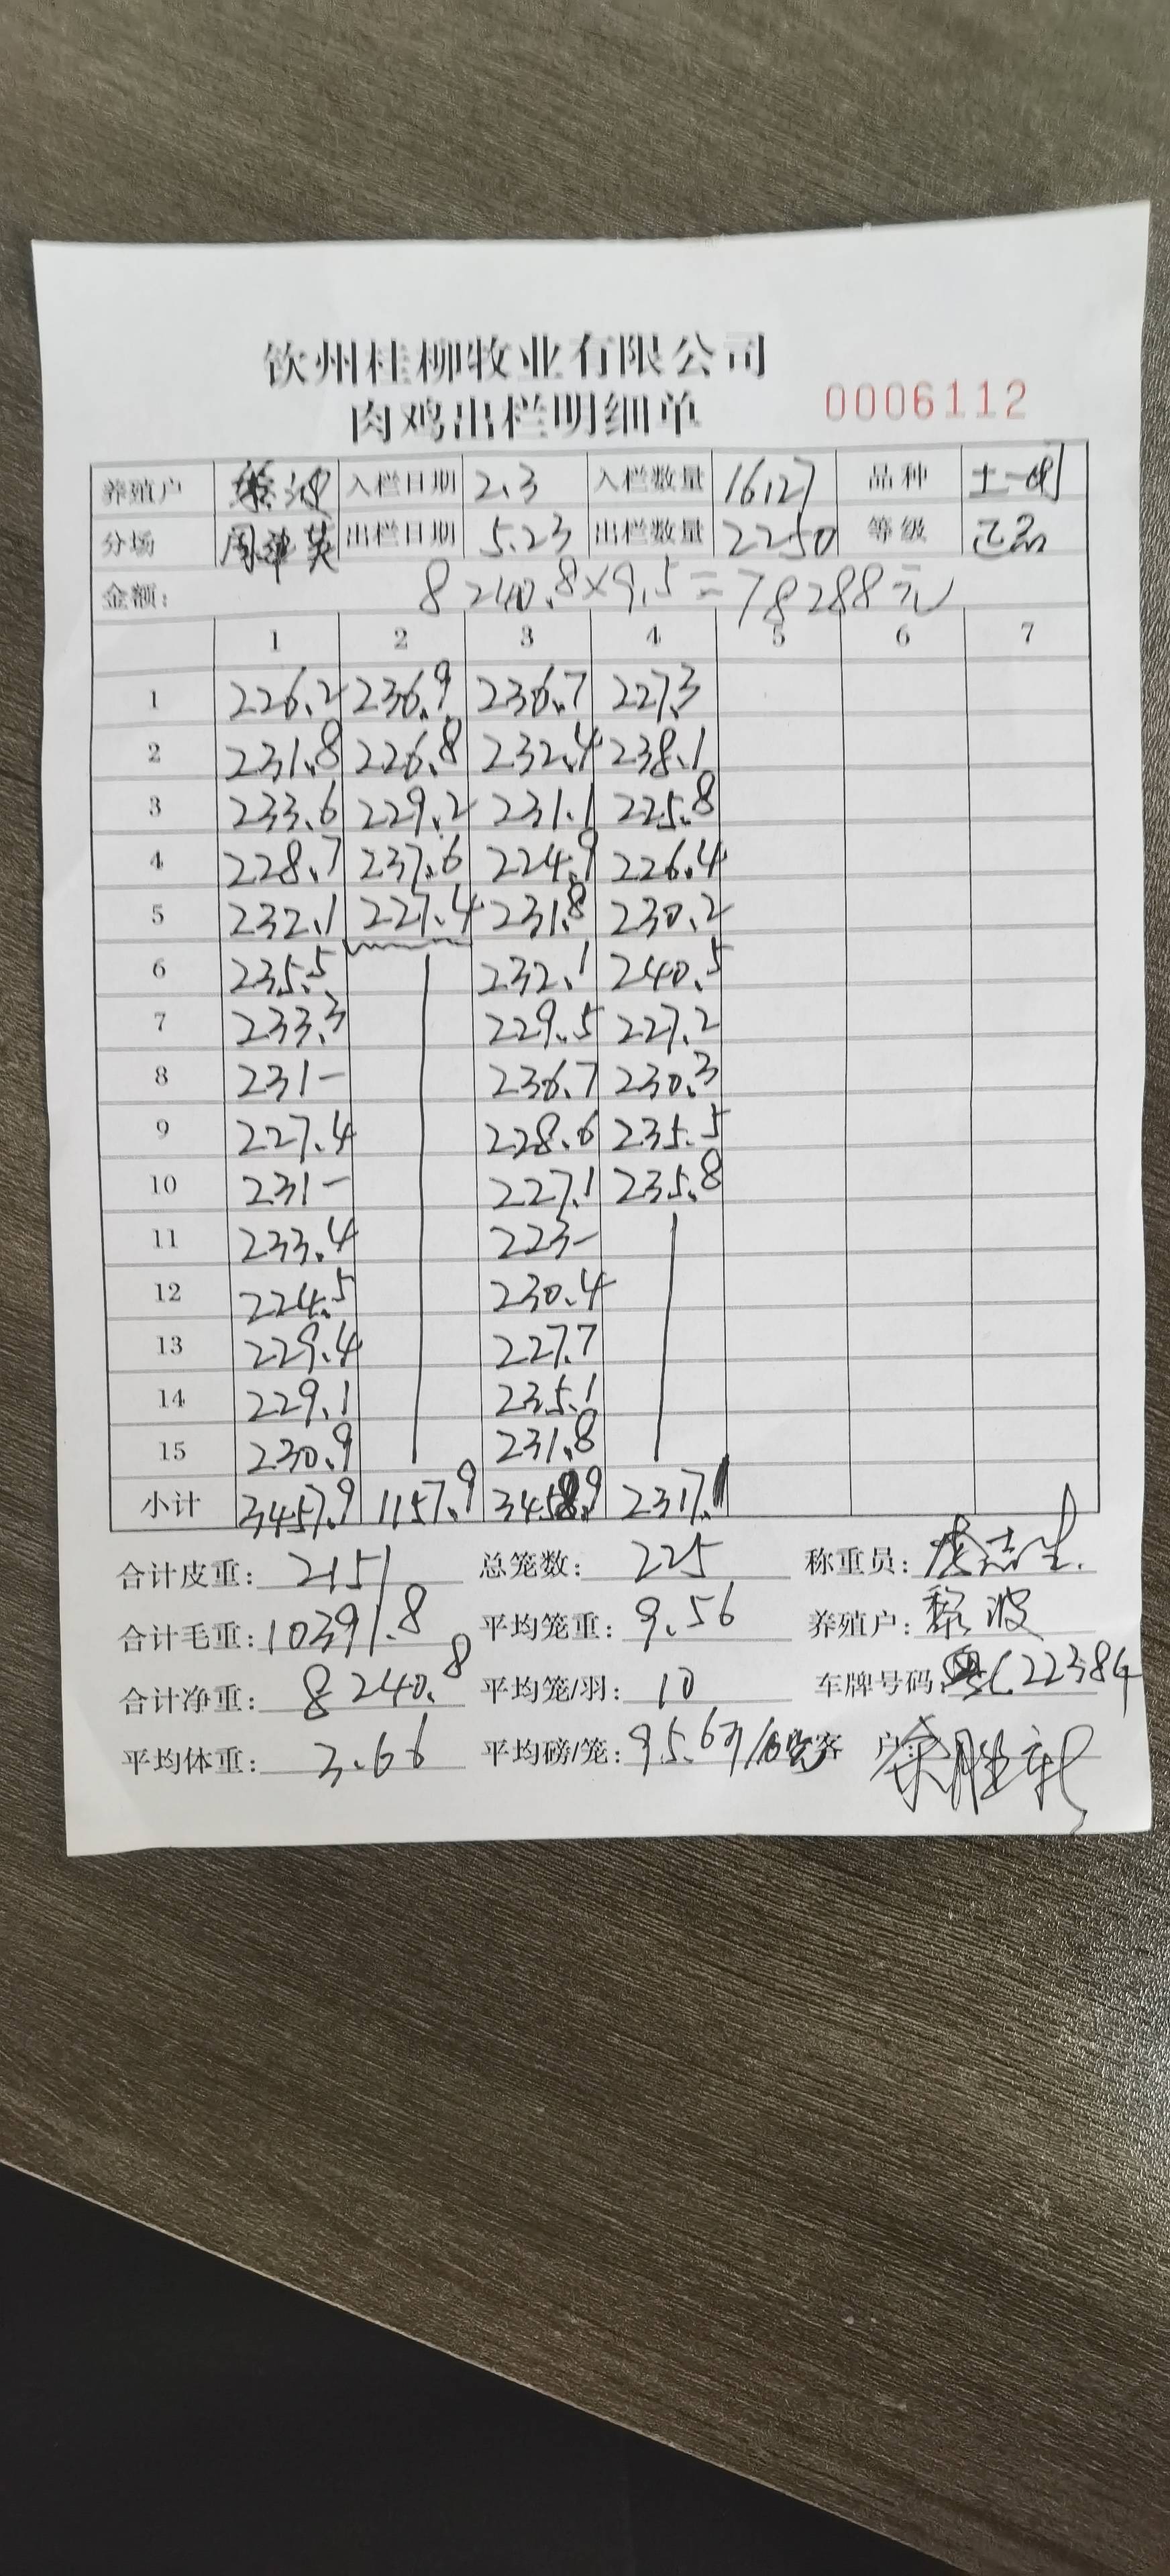 钦州桂柳牧业有限公司
肉鸡出栏明细单 0006112
养殖户 黎波 入栏日期 2.3 入栏数量 16127 品种 土一
分场 周 英 出栏日期 5.23 出栏数量 2250 等级 正品
金额: 8240.8×9.5=78288元
1 2 3 4 5 6 7
1 226.2 236.9 236.7 227.3
2 231.8 226.8 232.4 238.1
3 233.6 229.2 231.1 225.8
4 228.7 237.6 224.9 226.4
5 232.1 227.4 231.8 230.2
6 235.5 232.1 240.5
7 233.3 229.5 227.2
8 231- 236.7 230.3
9 227.4 228.6 235.5
10 231- 227.1 235.8
11 233.4 223-
12 224.5 230.4
13 229.4 227.7
14 229.1 235.1
15 230.9 231.8
小计 3457.9 1157.9 3458.9 2317.1
合计皮重: 2151 总笼数: 225 称重员:
合计毛重: 10391.8 平均笼重: 9.56 养殖户: 黎波
合计净重: 8240.8 平均笼/羽: 10 车牌号码: C22384
平均体重: 3.66 平均磅/笼: 95.6 客 户: